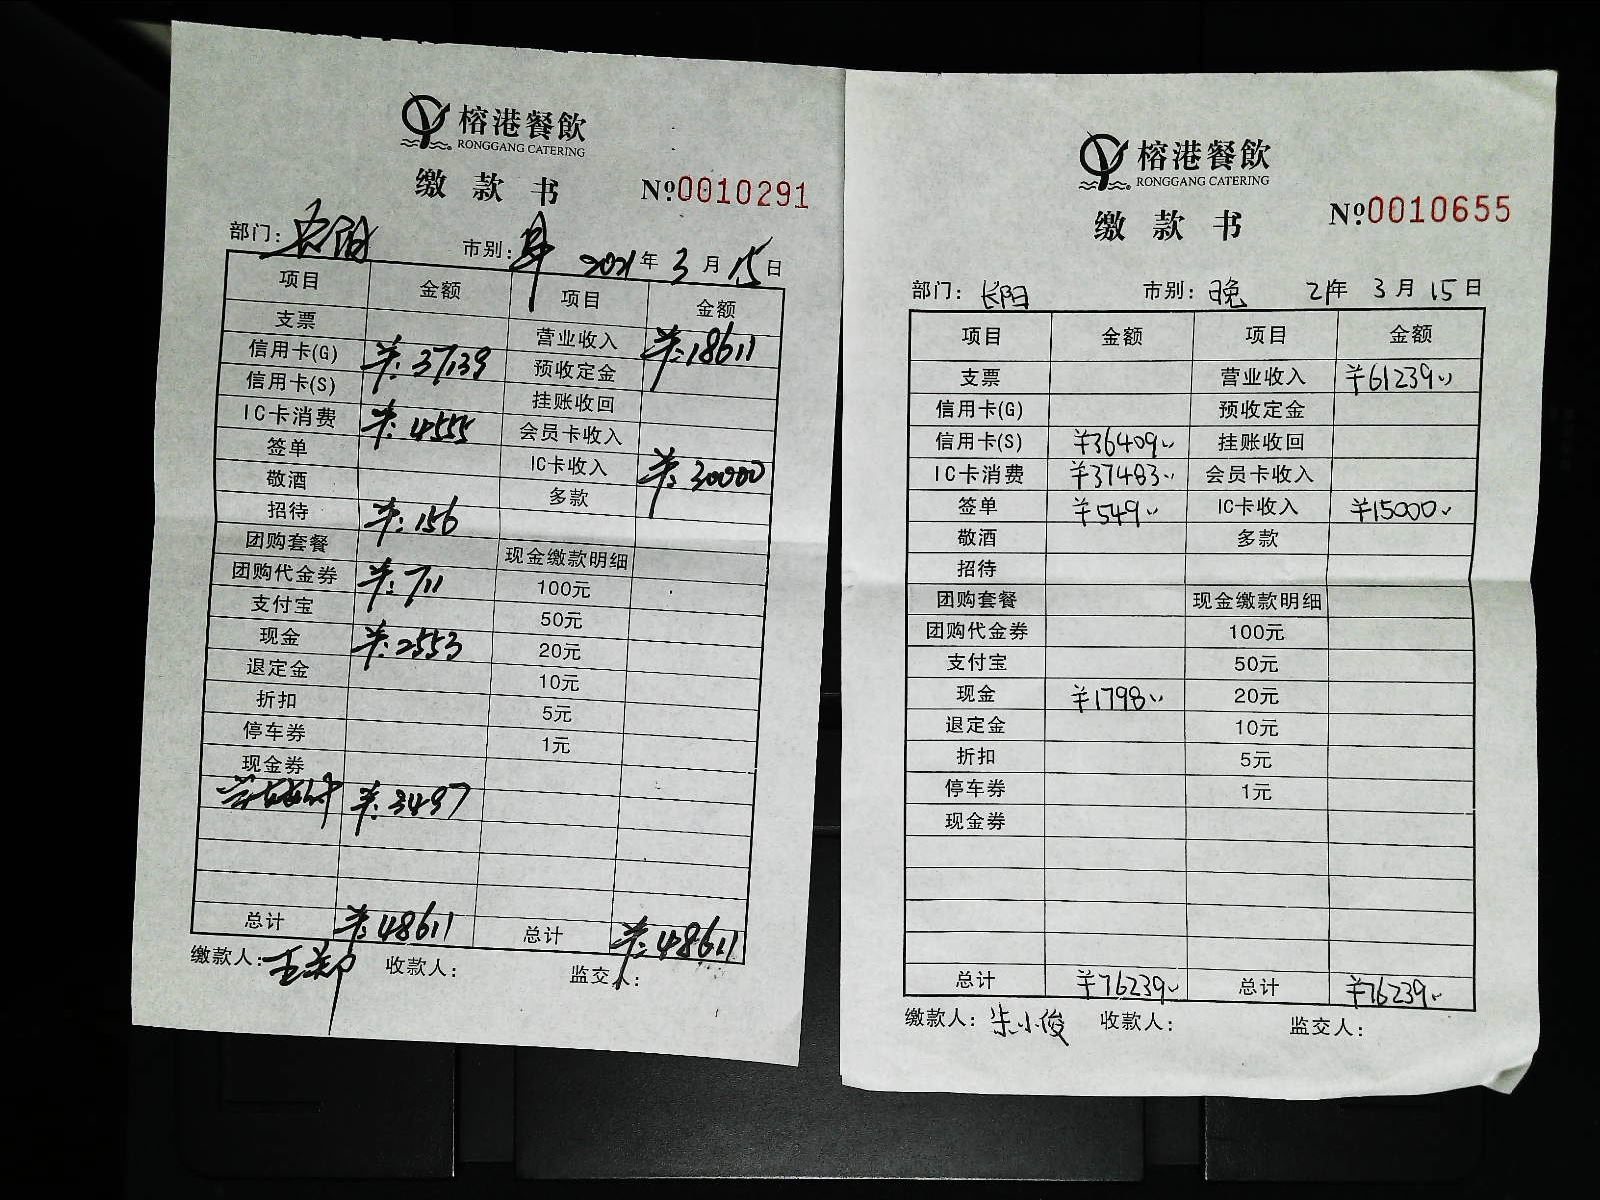 榕港餐飲
RONGGANG CATERING
缴款书 №0010291
部门: 市别: 2021年 3月 15日
项目 金额 项目 金额
支票 营业收入 ¥:18611
信用卡(G) ¥:37139 预收定金
信用卡(S) 挂账收回
IC卡消费 ¥:4555 会员卡收入
签单 IC卡收入 ¥:30000
敬酒 多款
招待 ¥:156
团购套餐 现金缴款明细
团购代金券 ¥:711 100元
支付宝 50元
现金 ¥:2553 20元
退定金 10元
折扣 5元
停车券 1元
现金券
¥:3497
总计 ¥:48611 总计 ¥:48611
缴款人: 收款人: 监交人:
榕港餐飲
RONGGANG CATERING
缴款书 №0010655
部门: 长阳 市别: 晚 21年 3月 15日
项目 金额 项目 金额
支票 营业收入 ¥61239
信用卡(G) 预收定金
信用卡(S) ¥36409 挂账收回
IC卡消费 ¥37483 会员卡收入
签单 ¥549 IC卡收入 ¥15000
敬酒 多款
招待
团购套餐 现金缴款明细
团购代金券 100元
支付宝 50元
现金 ¥1798 20元
退定金 10元
折扣 5元
停车券 1元
现金券
总计 ¥76239 总计 ¥76239
缴款人: 朱小俊 收款人: 监交人: